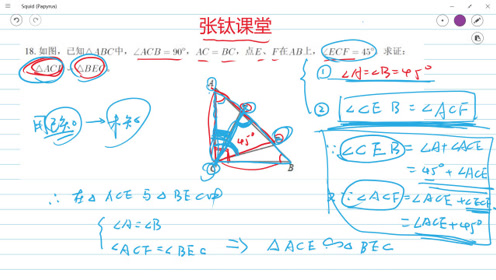 Squid (Papyrus)
张钛课堂
18. 如图，已知△ABC中，∠ACB = 90°，AC = BC，点E、F在AB上，∠ECF = 45°，求证：
△ACF∽△BEC
① ∠A=∠B=45°
② ∠CEB=∠ACF
由已知 → 未知
A
45°
C
B
∵ ∠CEB = ∠A+∠ACE
= 45°+∠ACE
又∵ ∠ACF = ∠ACE+∠ECF
= ∠ACE+45°
∴ 在△ACF与△BEC中
∠A=∠B
∠ACF=∠BEC ⇒ △ACF∽△BEC